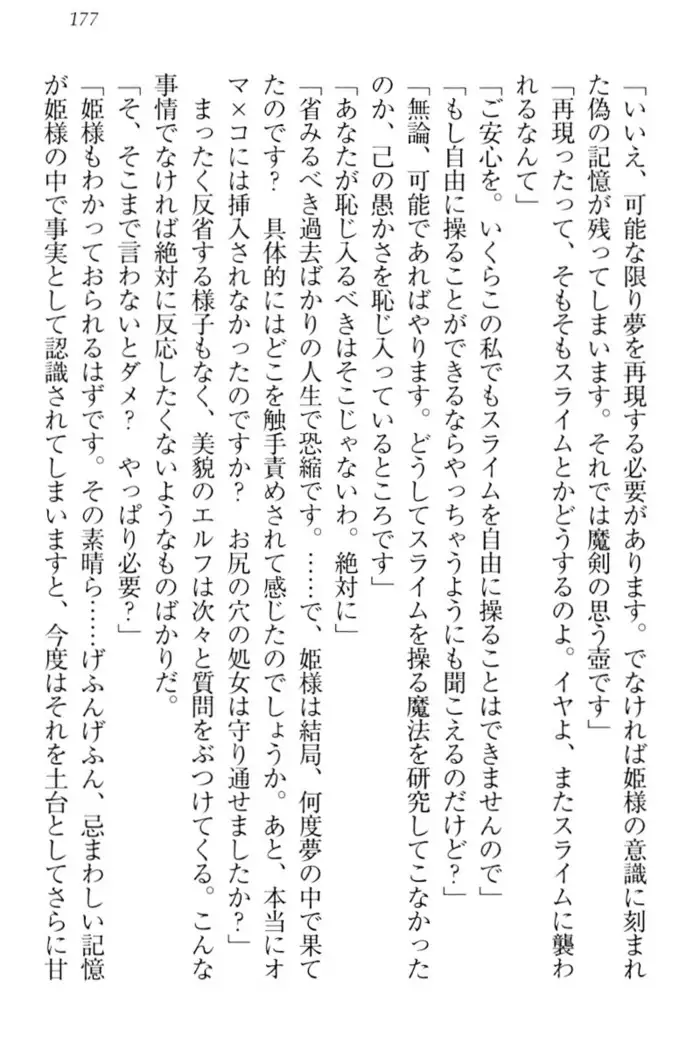 177
「いいえ、可能な限り夢を再現する必要があります。でなければ姫様の意識に刻まれ
た偽の記憶が残ってしまいます。それでは魔剣の思う壺です」
「再現ったって、そもそもスライムとかどうするのよ。イヤよ、またスライムに襲わ
れるなんて」
「ご安心を。いくらこの私でもスライムを自由に操ることはできませんので」
「もし自由に操ることができるならやっちゃうようにも聞こえるのだけど?」
「無論、可能であればやります。どうしてスライムを操る魔法を研究してこなかった
のか、己の愚かさを恥じ入っているところです」
「あなたが恥じ入るべきはそこじゃないわ。絶対に」
「省みるべき過去ばかりの人生で恐縮です。……で、姫様は結局、何度夢の中で果て
たのです? 具体的にはどこを触手責めされて感じたのでしょうか。あと、本当にオ
マ×コには挿入されなかったのですか? お尻の穴の処女は守り通せましたか?」
まったく反省する様子もなく、美貌のエルフは次々と質問をぶつけてくる。こんな
事情でなければ絶対に反応したくないようなものばかりだ。
「そ、そこまで言わないとダメ? やっぱり必要?」
「姫様もわかっておられるはずです。その素晴ら……げふんげふん、忌まわしい記憶
が姫様の中で事実として認識されてしまいますと、今度はそれを土台としてさらに甘